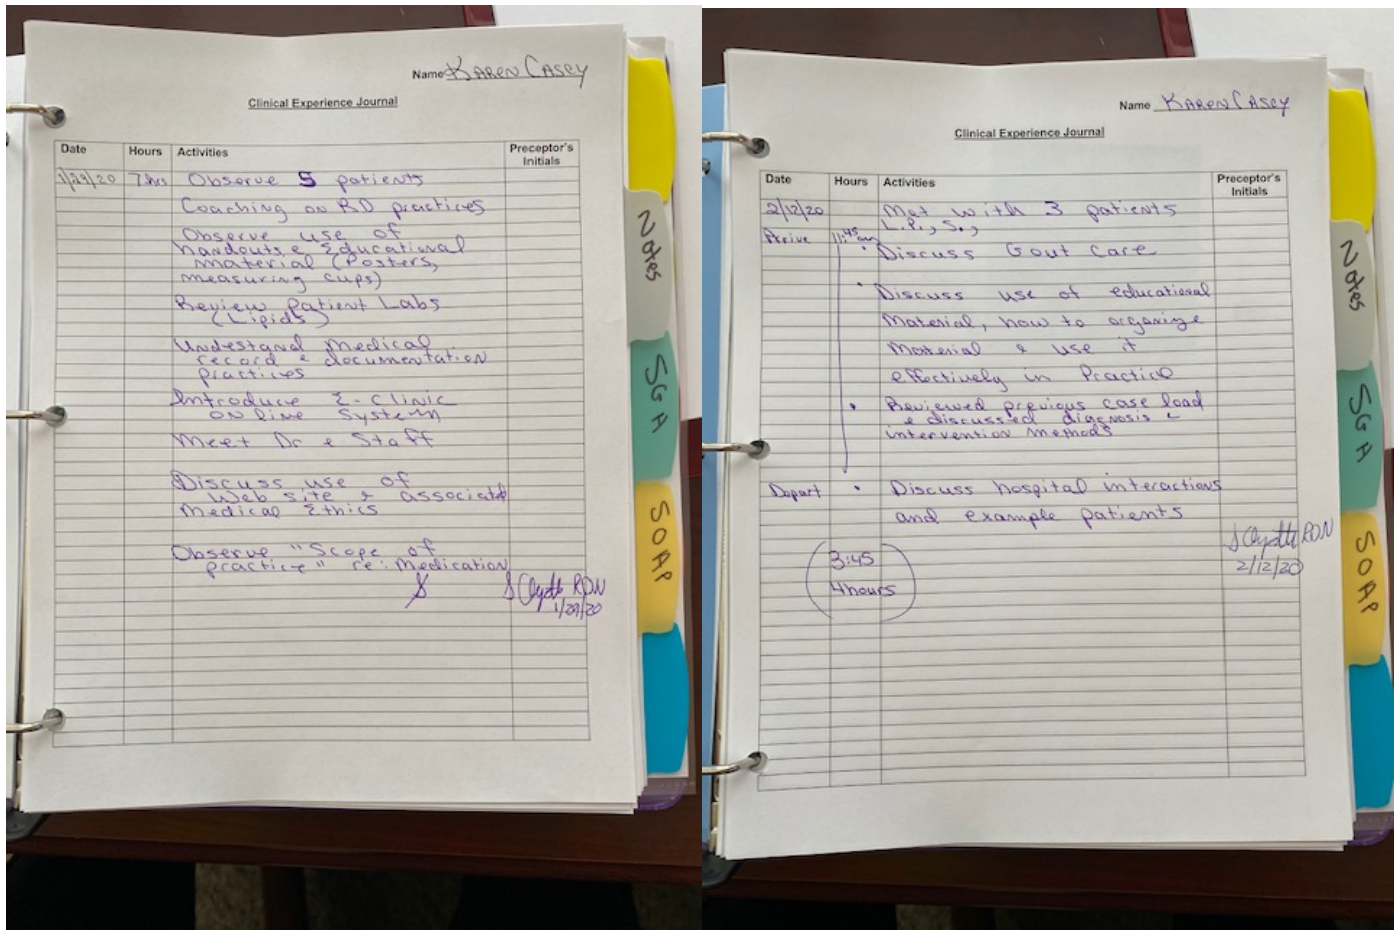 Name KAREN CASEY
Clinical Experience Journal
Date Hours Activities Preceptor's Initials
1/29/20 7 hrs Observe 5 patients
Coaching on RD practices
Observe use of
handouts & Educational
material (Posters,
measuring cups)
Review Patient Labs
(Lipids)
Undestand Medical
record & documentation
practices
Introduce E-Clinic
on line System
Meet Dr & Staff
Discuss use of
Web site & associated
Medical Ethics
Observe "Scope of
practice" re: Medication
RDN
1/29/20
Notes
SGA
SOAP
Name KAREN CASEY
Clinical Experience Journal
Date Hours Activities Preceptor's Initials
2/12/20 Met with 3 patients
L.P., S.,
Arrive 11:45 am
Discuss Gout Care
Discuss use of educational
Material, how to organize
Material & use it
effectively in Practice
Reviewed previous case load
& discussed diagnosis &
intervention methods
Depart Discuss hospital interactions
and example patients
RDN
2/12/20
3:45
4 hours
Notes
SGA
SOAP